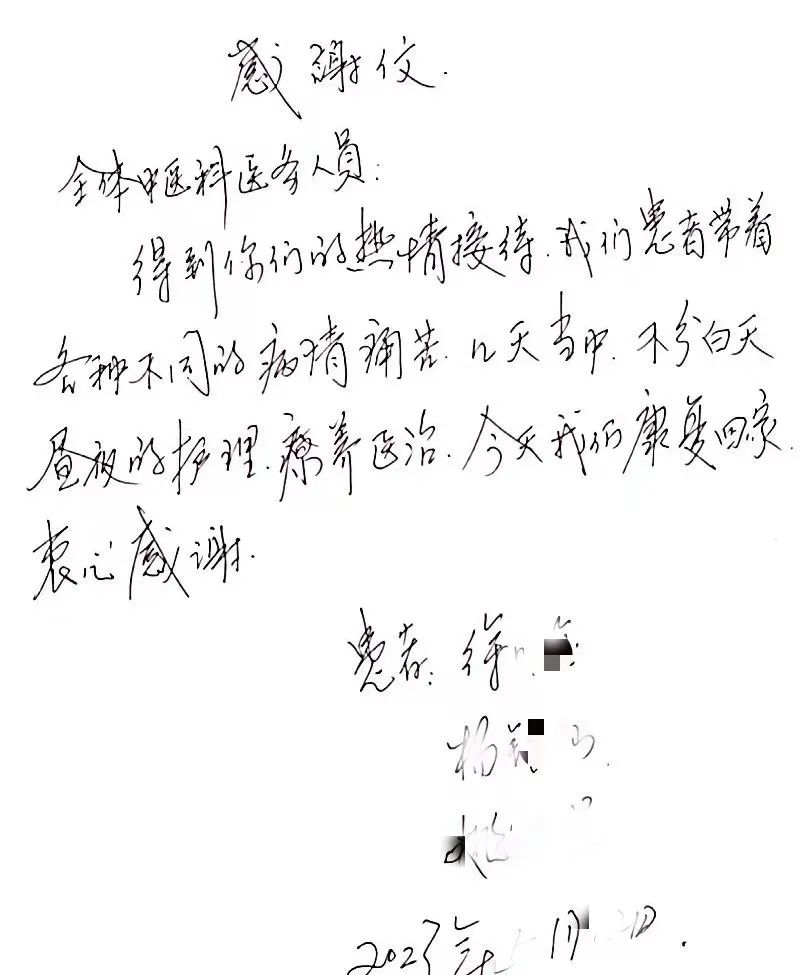 感謝伩.
全体中医科医务人员:
得到你们的热情接待.我们患者带着
各种不同的病情痛苦.几天当中.不分白天
昼夜的护理.療养医治.今天我们康复回家.
衷心感谢.
患者:徐
杨
2023年 月 日.